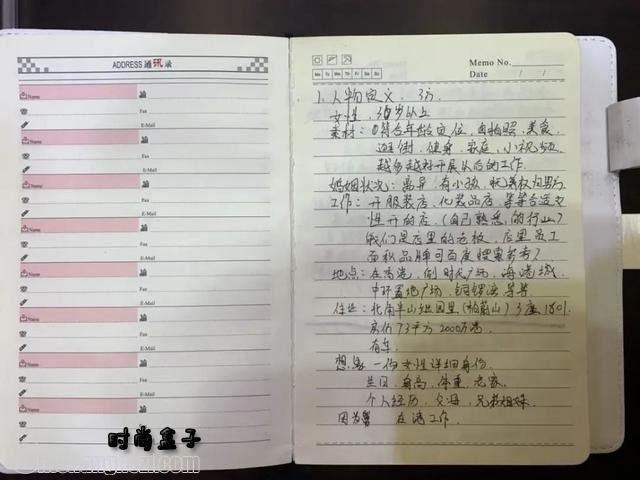 ADDRESS 通讯录
Name
Fax
E-Mail
Name
Fax
E-Mail
Name
Fax
E-Mail
Name
Fax
E-Mail
Name
Fax
E-Mail
Name
Fax
E-Mail
Name
Fax
E-Mail
Name
Fax
E-Mail
时尚盒子
Memo No.
Mo Tu We Th Fr Sa Su
Date / /
1. 人物定义
女性, 30岁以上
素材: ①符合年龄定位, 自拍照, 美食
逛街, 健身, 家庭, 小视频
越多越好开展以后的工作.
婚姻状况: 离异, 有小孩, 抚养权归男方
工作: 开服装店, 化妆品店, 等等合适女
性开的店. (自己熟悉的行业)
我们是店里的老板, 店里员工
面积品牌可百度搜索参考)
地点: 在香港, 例 时代广场, 海港城,
中环置地广场, 铜锣湾等等
住址: 北角半山 园里 (柏蔚山) 3座1801.
房价73平方 2000万港
有车.
想象一份女性详细身份.
生日, 身高, 体重, 老家.
个人经历, 父母, 兄弟姐妹.
因为 在港工作.